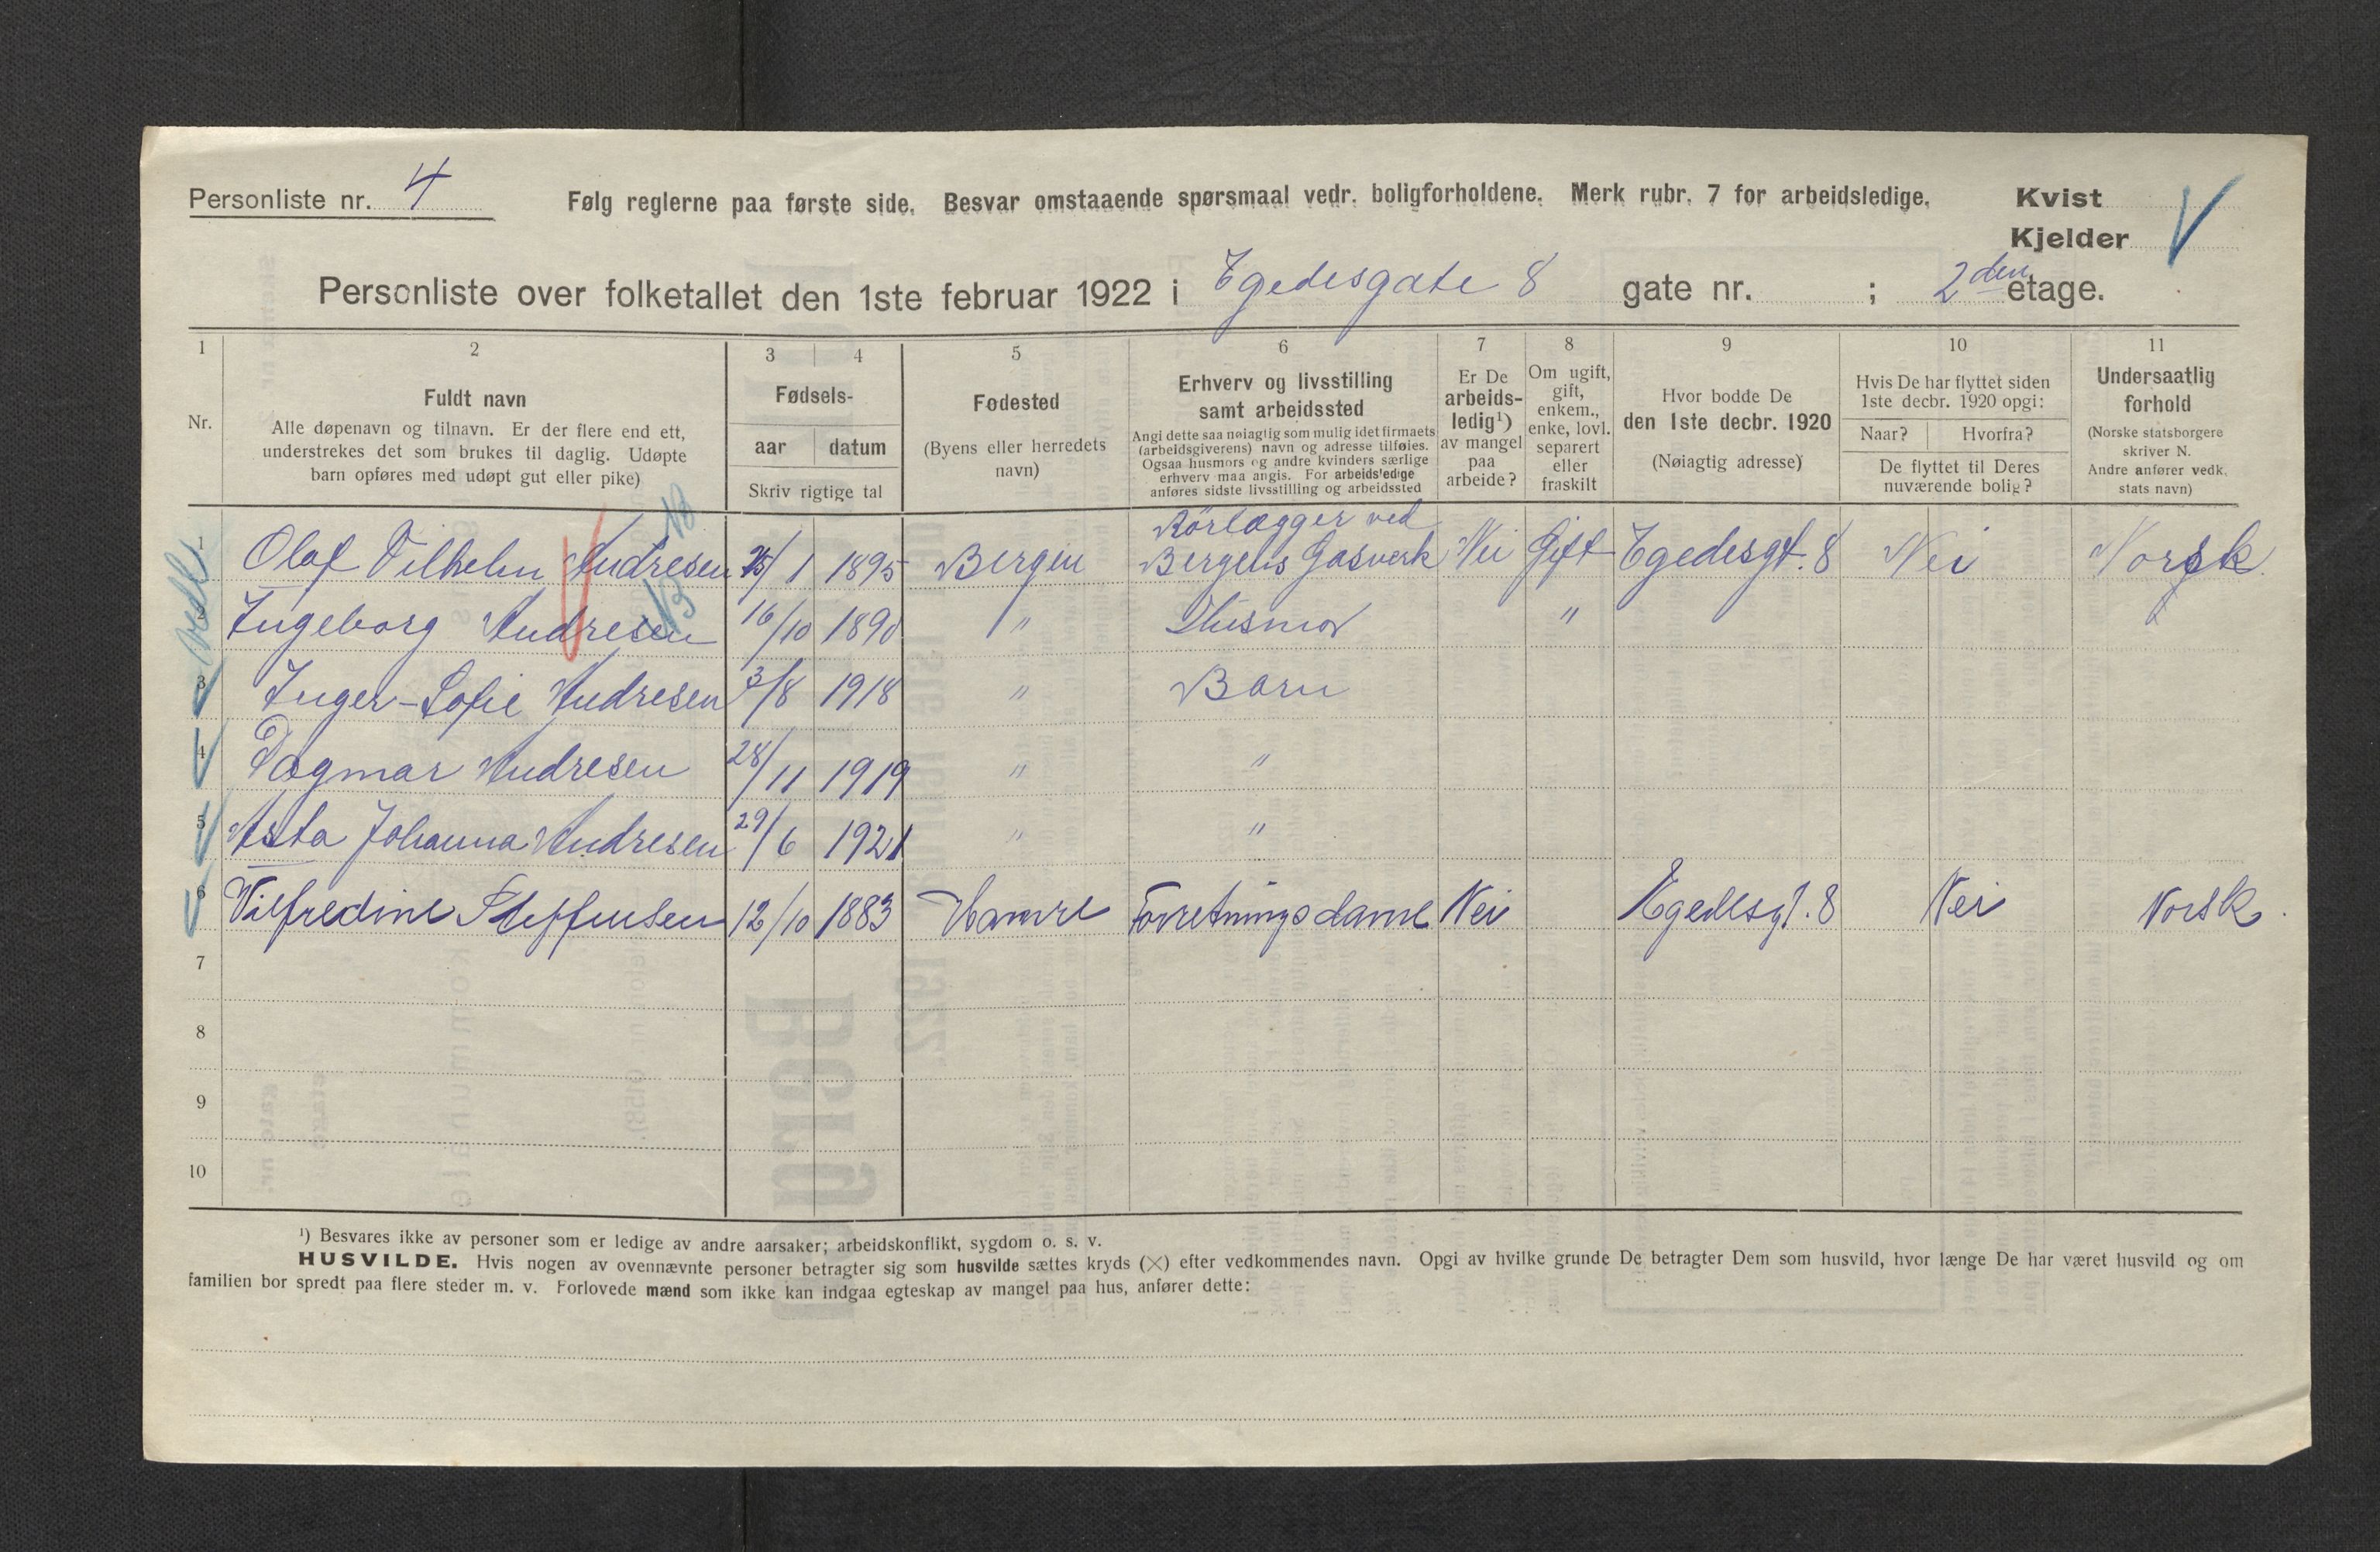 Personliste nr. 4
Følg reglerne paa første side. Besvar omstaaende spørsmaal vedr. boligforholdene. Merk rubr. 7 for arbeidsledige.
Kvist
Kjelder
Personliste over folketallet den 1ste februar 1922 i Egedesgate 8 gate nr. ; 2den etage.
1 2 3 4 5 6 7 8 9 10 11
Nr.
Fuldt navn
Alle døpenavn og tilnavn. Er der flere end ett,
understrekes det som brukes til daglig. Udøpte
barn opføres med udøpt gut eller pike)
Fødsels-
aar datum
Skriv rigtige tal
Fødested
(Byens eller herredets
navn)
Erhverv og livsstilling
samt arbeidssted
Angi dette saa nøiagtig som mulig idet firmaets
(arbeidsgiverens) navn og adresse tilføies.
Ogsaa husmors og andre kvinders særlige
erhverv maa angis. For arbeidsledige
anføres sidste livsstilling og arbeidssted
Er De
arbeids-
ledig¹)
av mangel
paa
arbeide?
Om ugift,
gift,
enkem.,
enke, lovl.
separert
eller
fraskilt
Hvor bodde De
den 1ste decbr. 1920
(Nøiagtig adresse)
Hvis De har flyttet siden
1ste decbr. 1920 opgi:
Naar? Hvorfra?
De flyttet til Deres
nuværende bolig?
Undersaatlig
forhold
(Norske statsborgere
skriver N.
Andre anfører vedk.
stats navn)
Rörlægger ved
1 Olaf Vilhelm Andresen 25/1 1895 Bergen Bergens Gasverk Nei Gift Egedesgt. 8 Nei Norsk.
2 Ingeborg Andresen 16/10 1890 " Husmor "
3 Inger-Sofie Andresen 3/8 1918 " Barn
4 Dagmar Andresen 28/11 1919 " "
5 Asta Johanna Andresen 29/6 1921 " "
6 Vilfredine Steffensen 12/10 1883 Hamre Forretningsdame Nei Egedesgt. 8 Nei Norsk.
7
8
9
10
¹) Besvares ikke av personer som er ledige av andre aarsaker; arbeidskonflikt, sygdom o. s. v.
HUSVILDE. Hvis nogen av ovennævnte personer betragter sig som husvilde sættes kryds (×) efter vedkommendes navn. Opgi av hvilke grunde De betragter Dem som husvild, hvor længe De har været husvild og om
familien bor spredt paa flere steder m. v. Forlovede mænd som ikke kan indgaa egteskap av mangel paa hus, anfører dette: